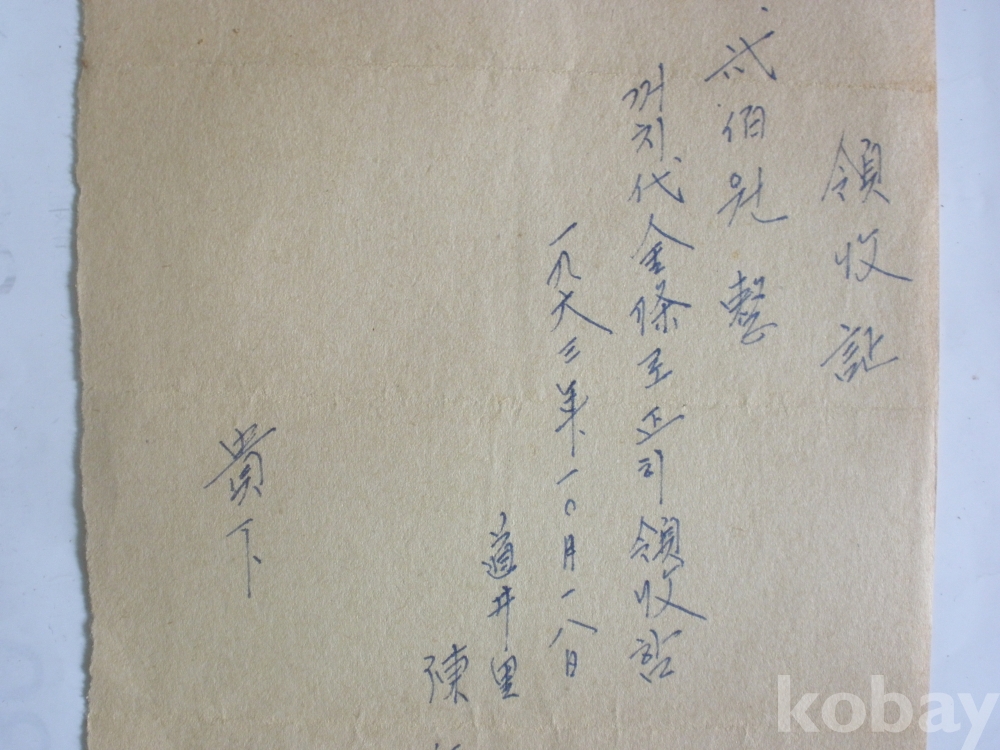 領收証
貳佰원整
꺼치代金條로正히領收함
一九六三年一〇月一八日
道井里
陳
貴下
kobay